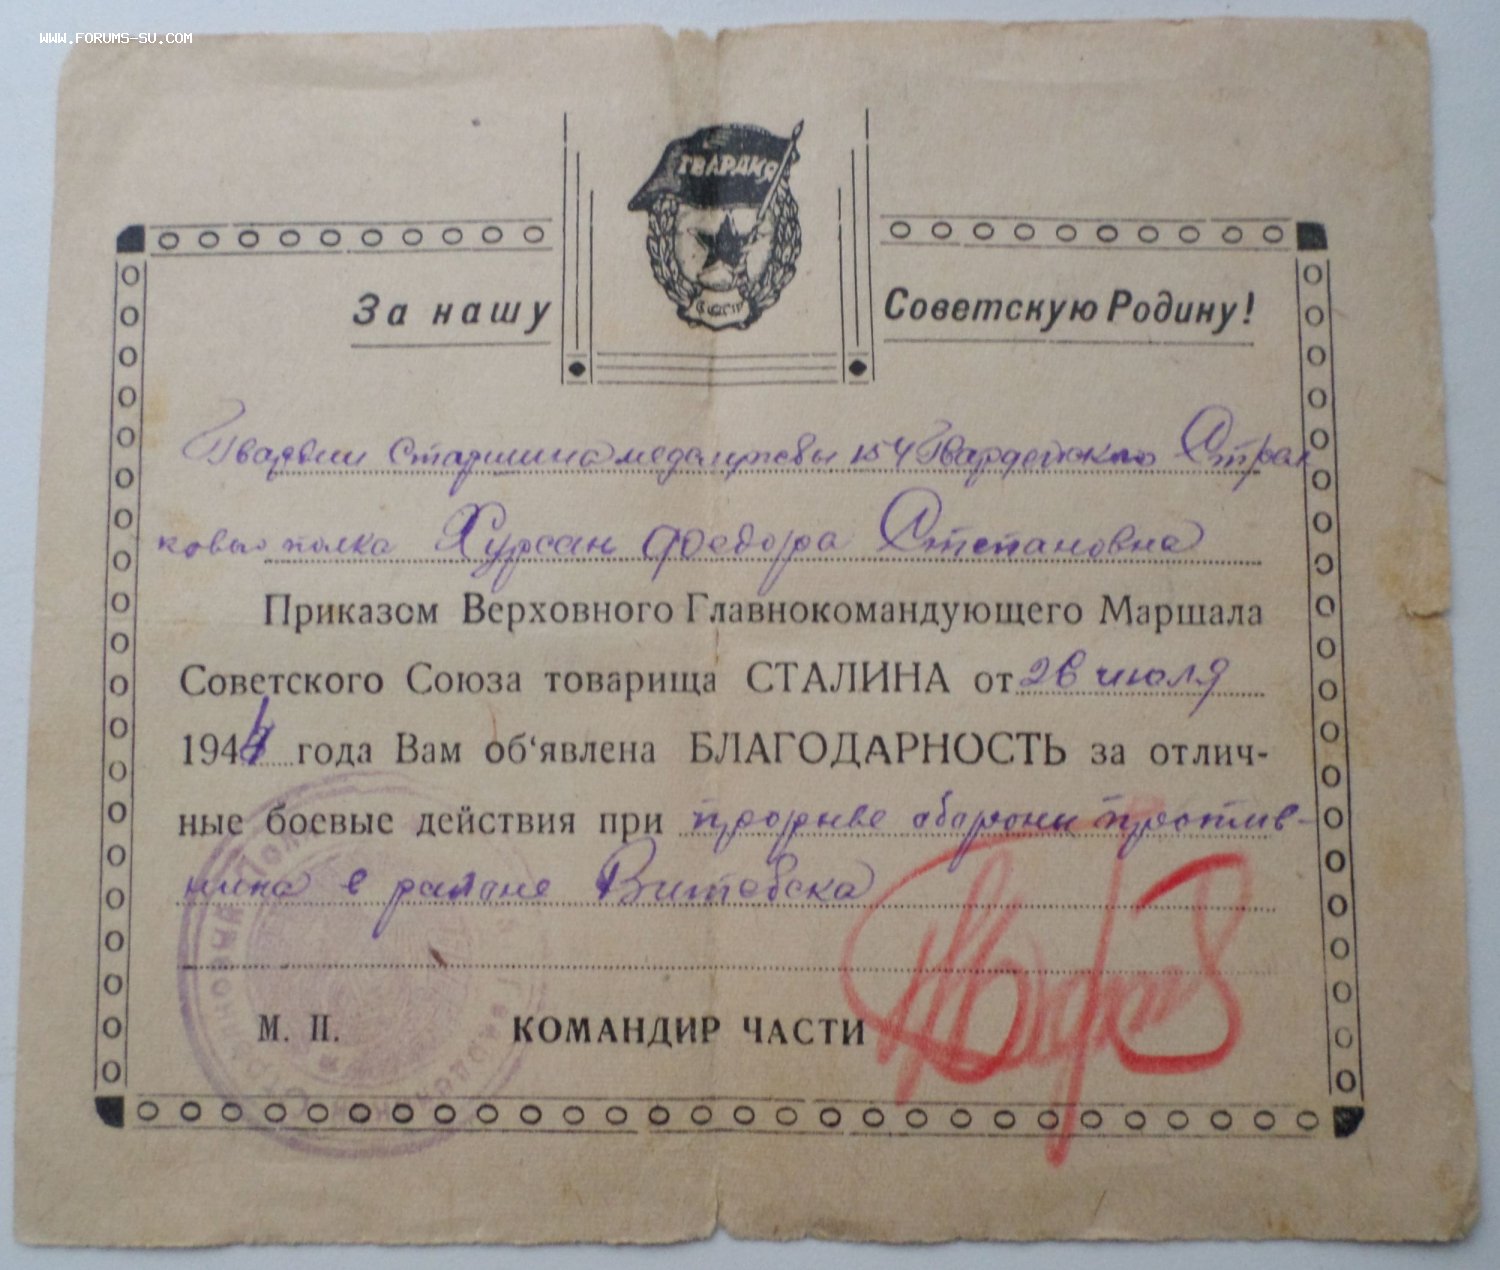 WWW.FORUMS-SU.COM
ГВАРДИЯ
СССР
За нашу Советскую Родину!
Гвардии Старшина медслужбы 154 Гвардейского Стрел
кового полка Хурсан Федора Степановна
Приказом Верховного Главнокомандующего Маршала
Советского Союза товарища СТАЛИНА от 26 июля
1944 года Вам об‘явлена БЛАГОДАРНОСТЬ за отлич-
ные боевые действия при прорыве обороны против-
ника в районе Витебска
М. П. КОМАНДИР ЧАСТИ